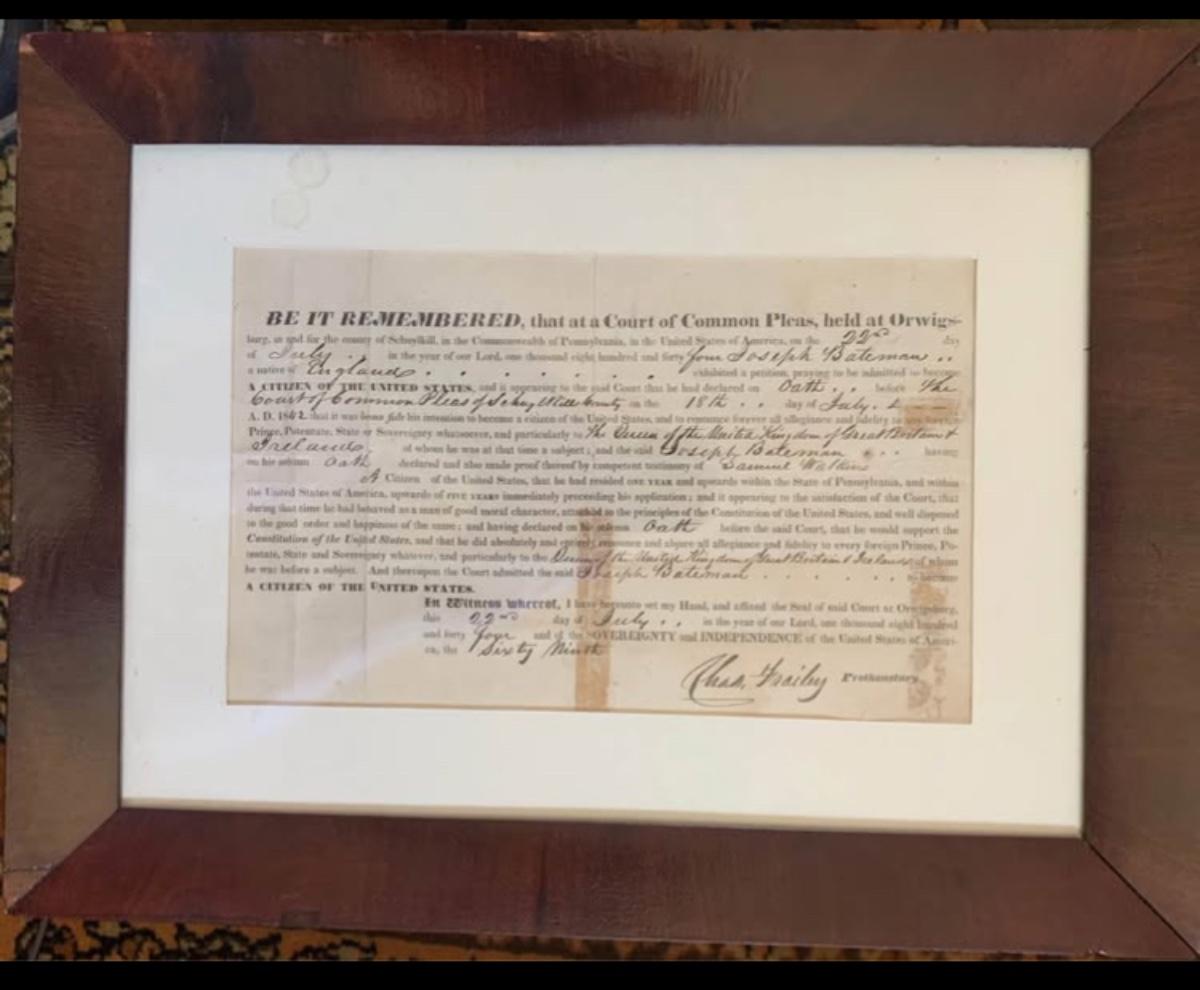 BE IT REMEMBERED, that at a Court of Common Pleas, held at Orwigs-
burg, in and for the county of Schuylkill, in the Commonwealth of Pennsylvania, in the United States of America, on the 22nd day
of July . . in the year of our Lord, one thousand eight hundred and forty four Joseph Bateman . .
a native of England . . . . . . . exhibited a petition, praying to be admitted to become
A CITIZEN OF THE UNITED STATES, and it appearing to the said Court that he had declared on Oath . . before The
Court of Common Pleas of Schuylkill County on the 18th . . day of July.
A. D. 1842, that it was bona fide his intention to become a citizen of the United States, and to renounce forever all allegiance and fidelity to any foreign
Prince, Potentate, State or Sovereignty whatsoever, and particularly to The Queen of the United Kingdom of Great Britain &
Ireland. of whom he was at that time a subject; and the said Joseph Bateman . . having
on his solemn Oath declared and also made proof thereof by competent testimony of Samuel Watkins
A Citizen of the United States, that he had resided ONE YEAR and upwards within the State of Pennsylvania, and within
the United States of America, upwards of FIVE YEARS immediately preceeding his application; and it appearing to the satisfaction of the Court, that
during that time he had behaved as a man of good moral character, attached to the principles of the Constitution of the United States, and well disposed
to the good order and happiness of the same; and having declared on his solemn Oath before the said Court, that he would support the
Constitution of the United States, and that he did absolutely and entirely renounce and abjure all allegiance and fidelity to every foreign Prince, Po-
tentate, State and Sovereignty whatever, and particularly to the Queen of the United Kingdom of Great Britain & Ireland of whom
he was before a subject. And thereupon the Court admitted the said Joseph Bateman . . . . . . to become
A CITIZEN OF THE UNITED STATES.
In Witness whereof, I have hereunto set my Hand, and affixed the Seal of said Court at Orwigsburg,
this 22nd day of July . . in the year of our Lord, one thousand eight hundred
and forty four and of the SOVEREIGNTY and INDEPENDENCE of the United States of Ameri-
ca, the Sixty Ninth
Chas. Frailey Prothonotary.